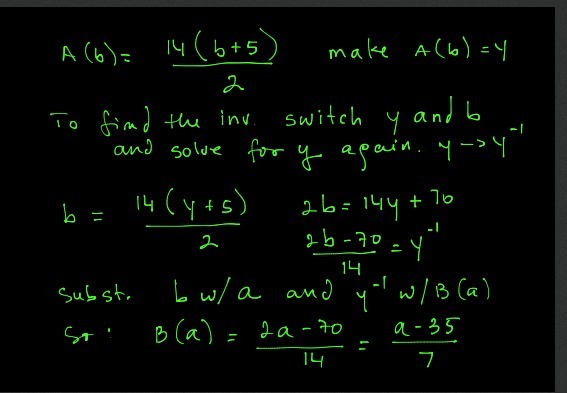 A(b) = 14(b+5)/2 make A(b) = y
To find the inv. switch y and b
and solve for y again. y -> y^-1
b = 14(y+5)/2 2b = 14y + 70
(2b-70)/14 = y^-1
subst. b w/a and y^-1 w/ B(a)
So: B(a) = (2a-70)/14 = (a-35)/7